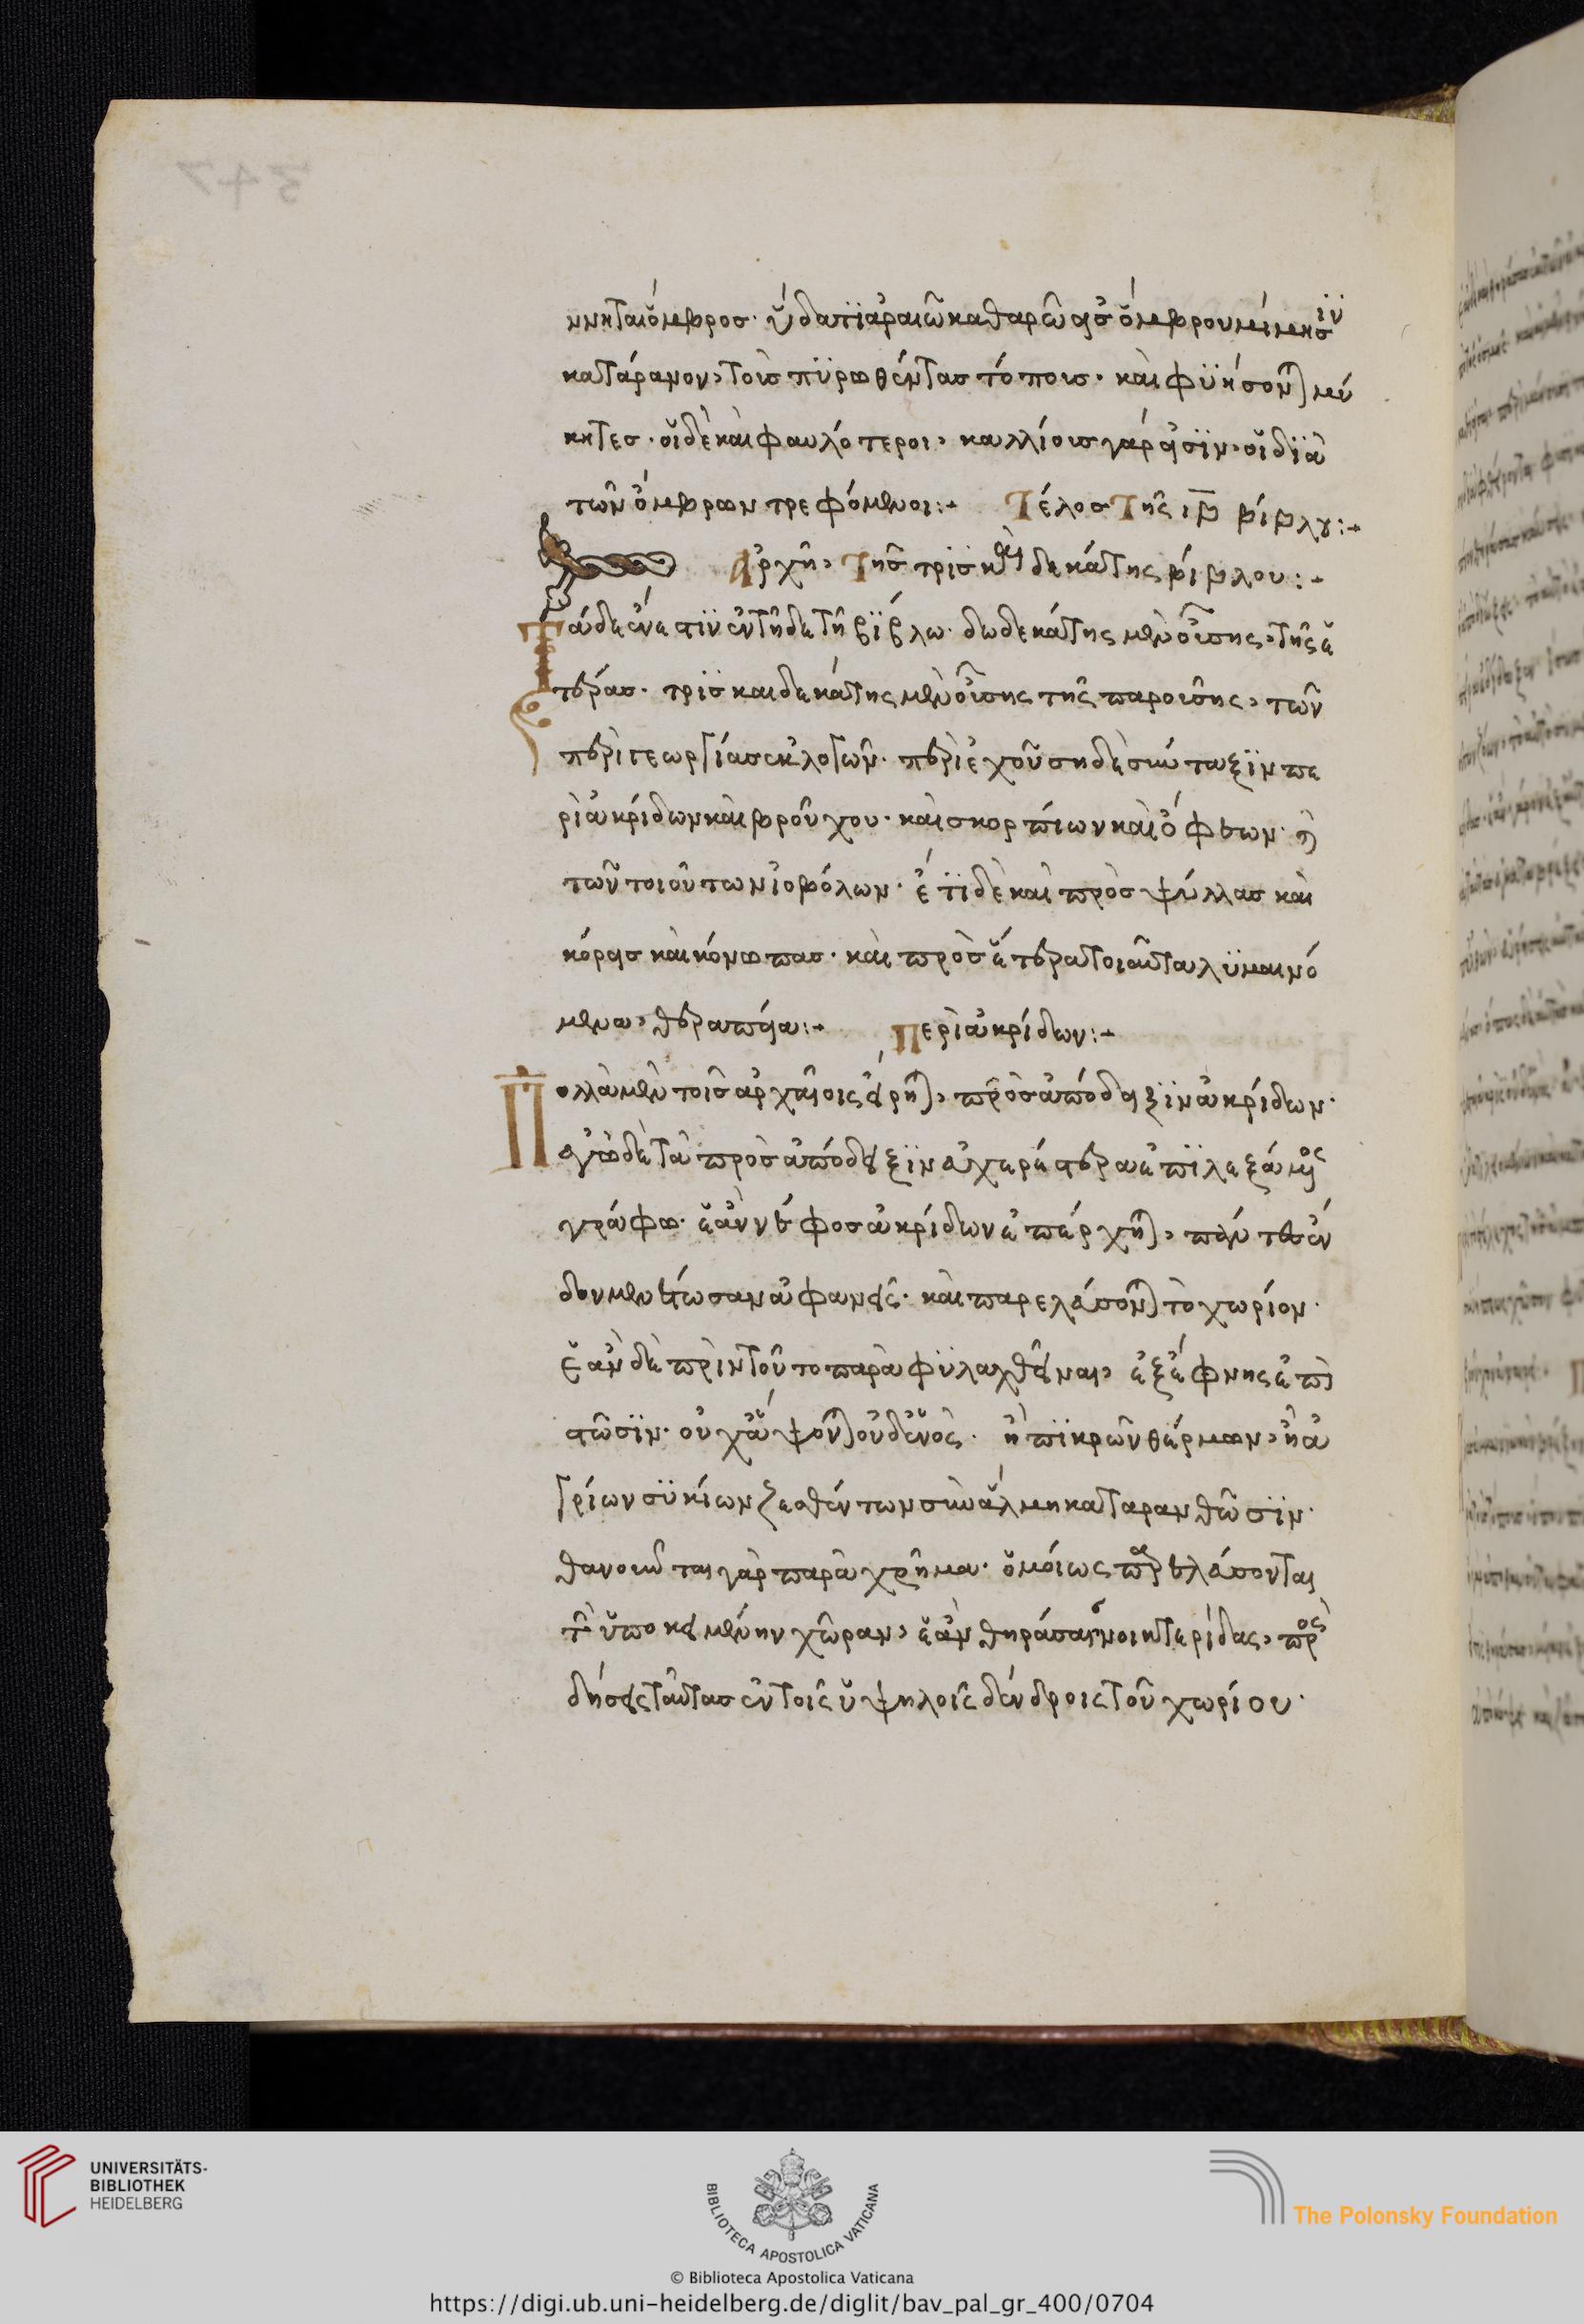 347
ννηται ὄμβρος· ὕδατι ἀραιῶ καθαρῶ εἰς ὄμβρου μίμησιν
κατάρανον, τοῖς πυρωθέντας τόποις· καὶ φυήσονται μύ
κητες· οἱ δὲ καὶ φαυλότεροι, καλλίοις γάρ εἰσιν, οἱ διὰ
τῶν ὄμβρων τρεφόμενοι:- Τέλος Τῆς ιβ βίβλου:-
Ἀρχὴ, Τῆς τρισκαιδεκάτης βίβλου:-
Τάδε ἔνεστιν ἐν τῆδε τῆ βίβλω· δωδεκάτης μὲν οὔσης, τῆς ἑ
τέρας· τρισκαιδεκάτης μὲν οὔσης τῆς παρούσης, τῶν
περὶ γεωργίας ἐκλογῶν· περιέχουση δὲ σύνταξιν πε
ρὶ ἀκρίδων καὶ βρούχου· καὶ σκορπίων καὶ ὄφεων· καὶ
τῶν τοιούτων ἰοβόλων· ἔτι δὲ καὶ πρὸς ψύλλας καὶ
κόρεις καὶ κόνωπας· καὶ πρὸς ἕτερα τοιαῦτα λυμαινό
μενα, θεραπεία:- Περὶ ἀκρίδων:-
Πολλὰ μὲν τοῖς ἀρχαίοις εἴρηται, πρὸς ἀπόδειξιν ἀκρίδων·
ἐγὼ δὲ τὰ πρὸς ἀπόδειξιν εὐχερέστερα ἐπιλεξάμενος
γράφω· ἐὰν νέφος ἀκρίδων ἐπέρχηται, πάντες ἔν
δον μενέτωσαν ἀφανεῖς· καὶ παρελεύσονται τὸ χωρίον·
ἐὰν δὲ πρὶν τοῦτο παραφυλαχθῆναι, ἐξέφνης ἐπι
στῶσιν· οὐχ ἅψονται οὐδενὸς· ἢ πικρῶν θέρμων, ἢ ἀ
γρίων συκίων ζεσθέντων σὺν ἅλμη καταρανθῶσιν·
θανοῦνται γὰρ παρὰ χρῆμα· ὁμοίως παρελεύσονται
τὴν ὑποκειμένην χώραν, ἐὰν θηράσας νοικτερίδας, προς
δήσεις ταύτας ἐν τοῖς ὑψηλοῖς δένδροις τοῦ χωρίου·
UNIVERSITÄTS-
BIBLIOTHEK
HEIDELBERG
BIBLIOTECA APOSTOLICA VATICANA
The Polonsky Foundation
© Biblioteca Apostolica Vaticana
https://digi.ub.uni-heidelberg.de/diglit/bav_pal_gr_400/0704